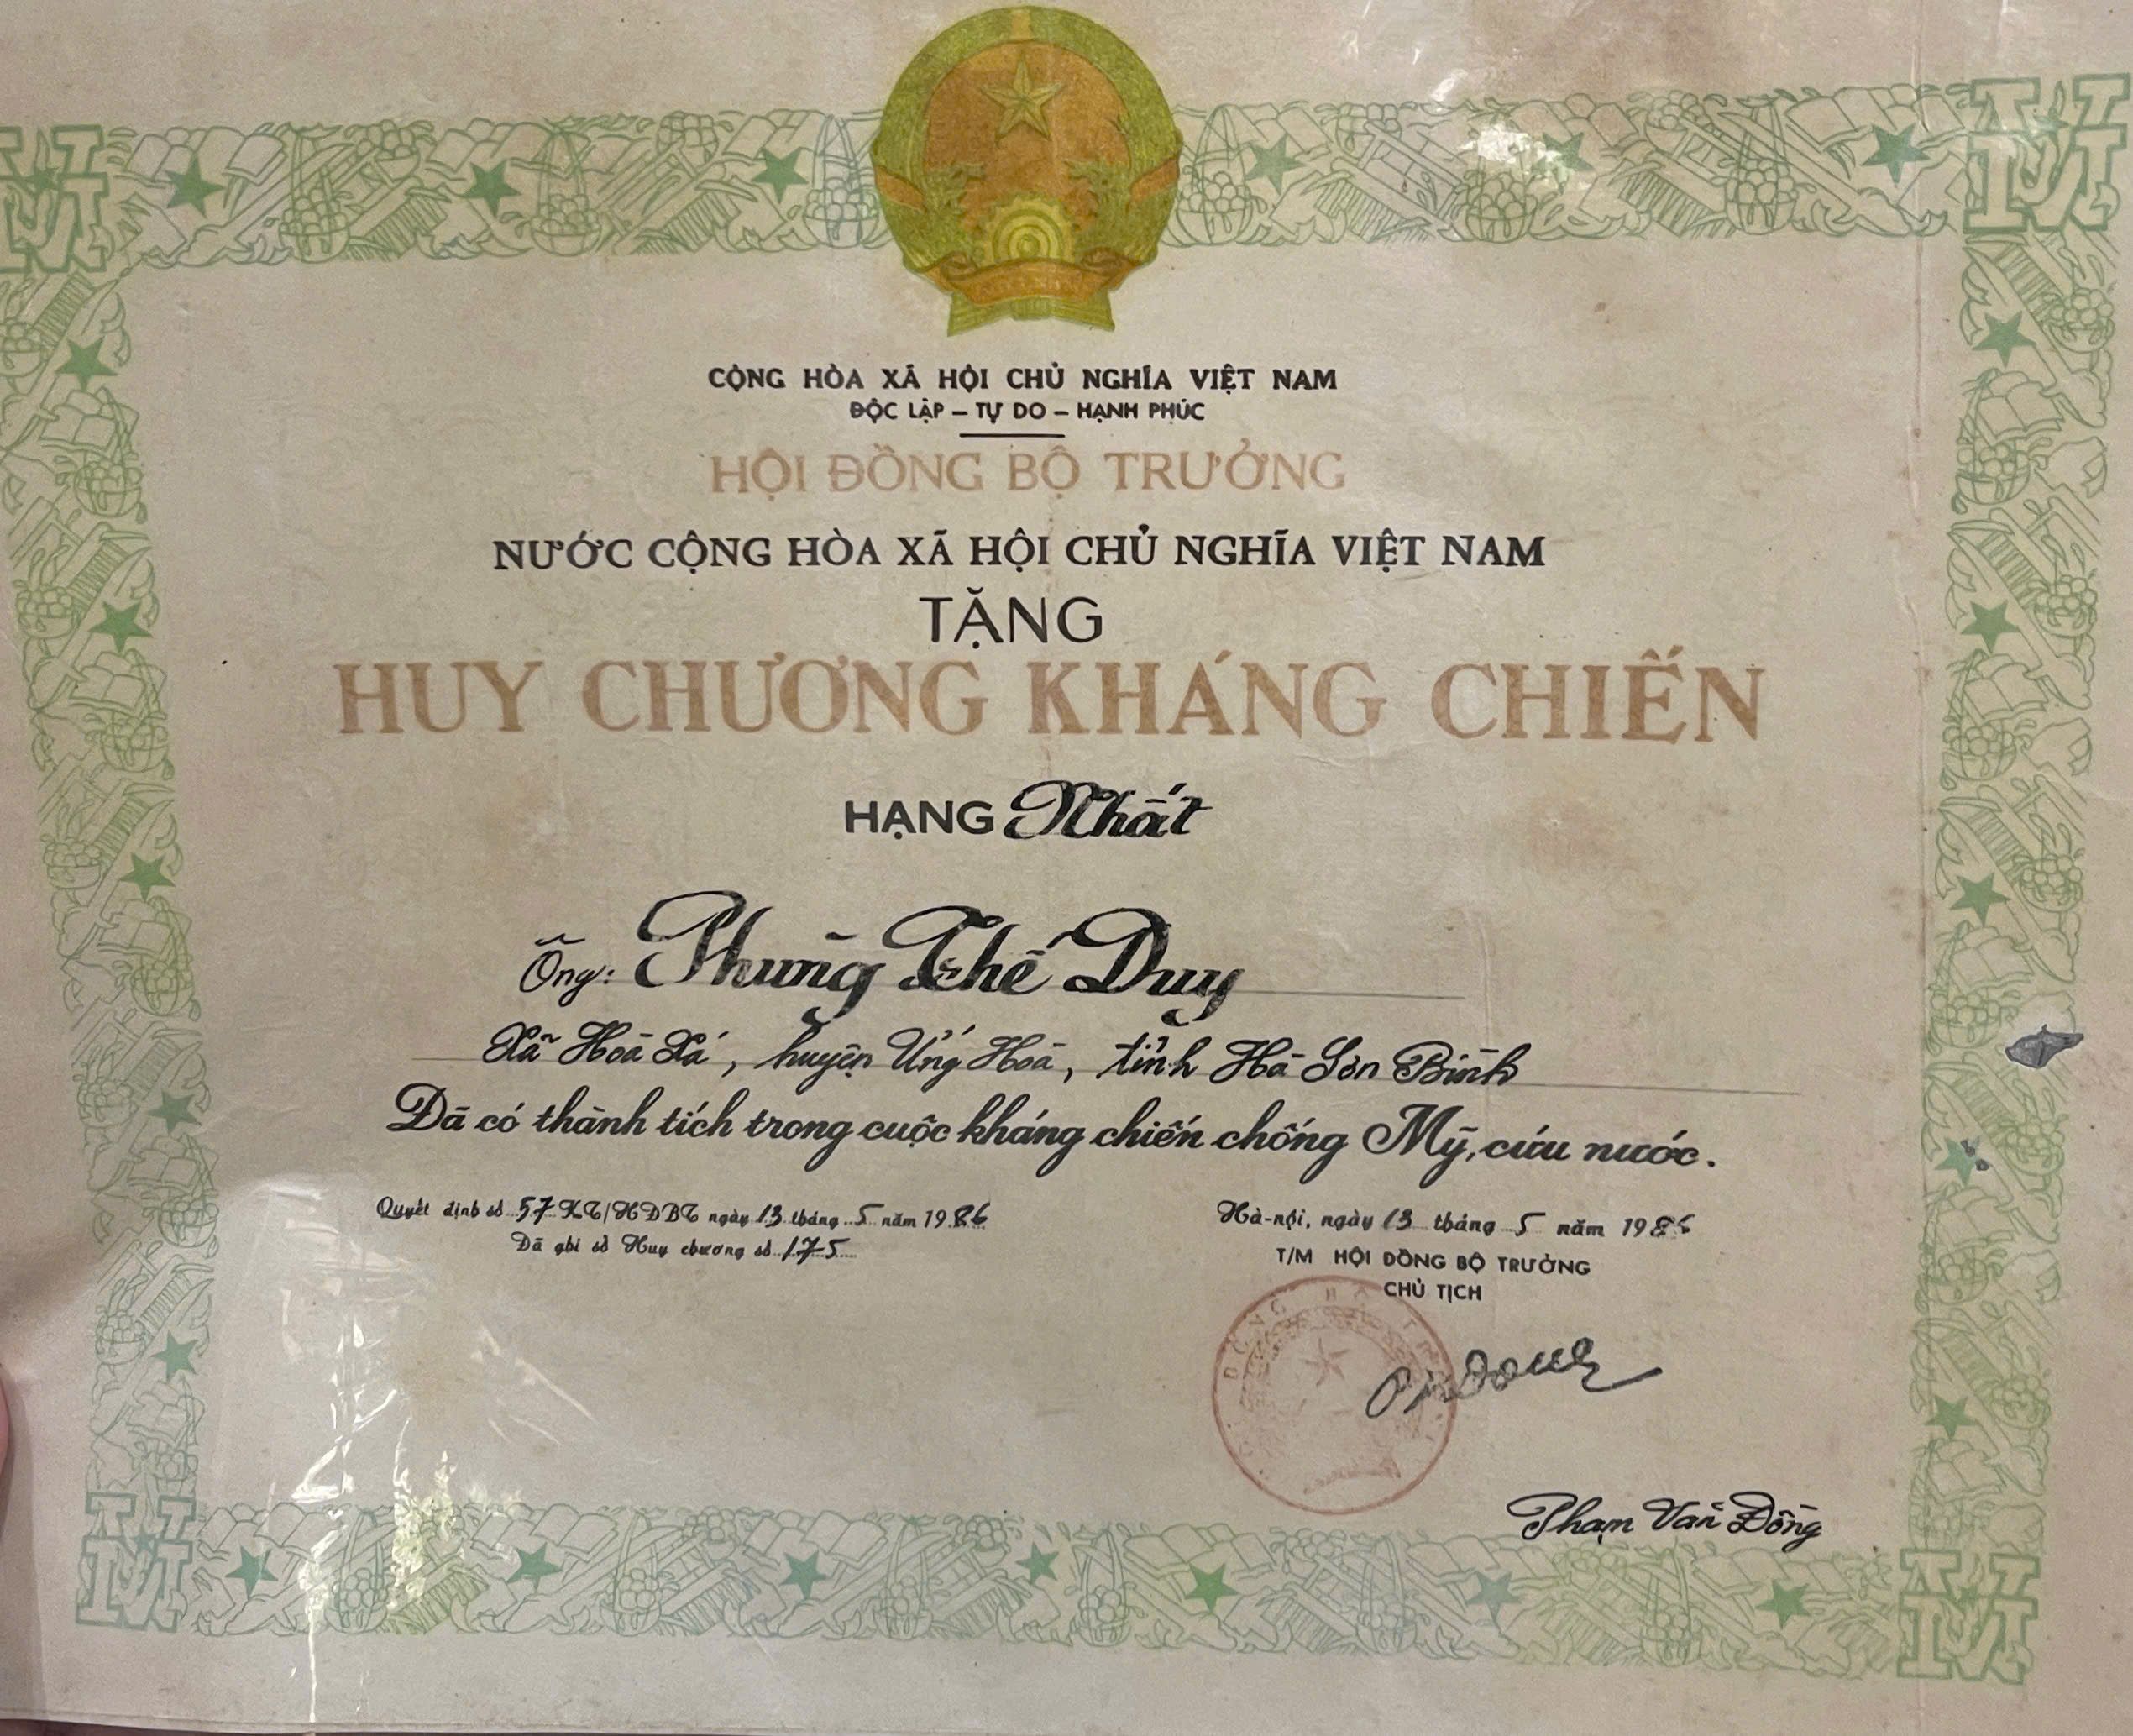 CỘNG HÒA XÃ HỘI CHỦ NGHĨA VIỆT NAM
ĐỘC LẬP – TỰ DO – HẠNH PHÚC
HỘI ĐỒNG BỘ TRƯỞNG
NƯỚC CỘNG HÒA XÃ HỘI CHỦ NGHĨA VIỆT NAM
TẶNG
HUY CHƯƠNG KHÁNG CHIẾN
HẠNG Nhất
Ông: Phùng Thế Duy
Xã Hoà Xá, huyện Ứng Hoà, tỉnh Hà Sơn Bình
Đã có thành tích trong cuộc kháng chiến chống Mỹ, cứu nước.
Quyết định số 57 KT/HĐBT ngày 13 tháng 5 năm 1986
Đã ghi sổ Huy chương số 175
Hà-nội, ngày 13 tháng 5 năm 1986
T/M HỘI ĐỒNG BỘ TRƯỞNG
CHỦ TỊCH
Phạm Văn Đồng